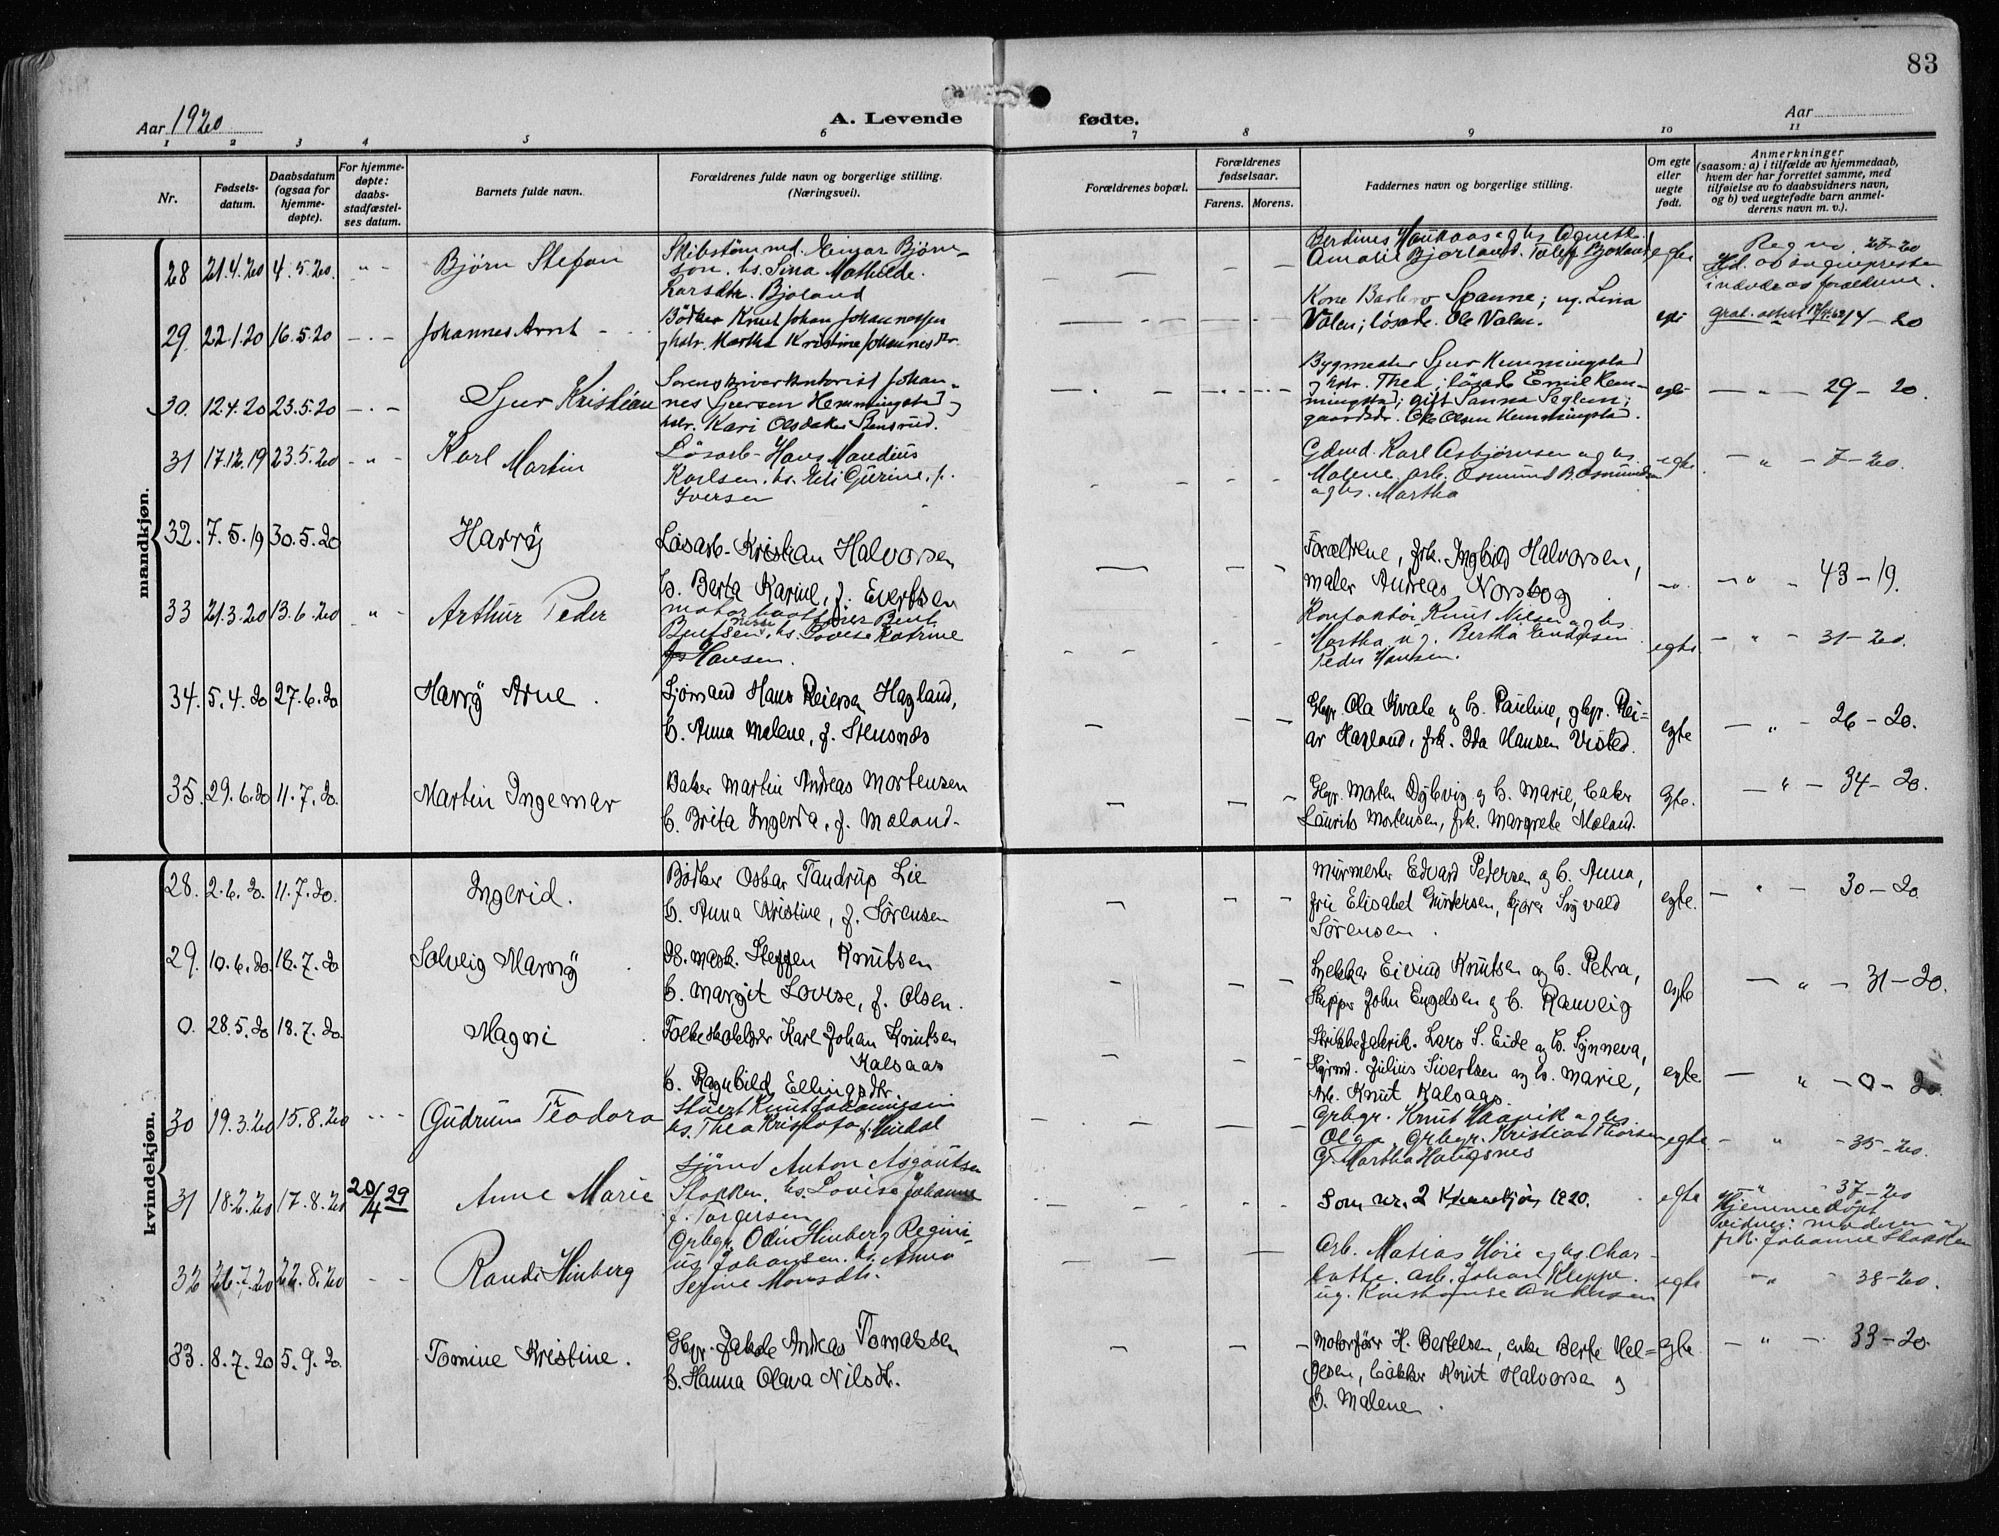 83
Aar 1920
A. Levende fødte.
Aar
1 2 3 4 5 6 7 8 9 10 11
Nr.
Fødsels-
datum.
Daabsdatum
(ogsaa for
hjemme-
døpte).
For hjemme-
døpte:
daabs-
stadfæstel-
ses datum.
Barnets fulde navn.
Forældrenes fulde navn og borgerlige stilling.
(Næringsvei).
Forældrenes bopæl.
Forældrenes
fødselsaar.
Farens. Morens.
Faddernes navn og borgerlige stilling.
Om egte
eller
uegte
født.
Anmerkninger
(saasom: a) i tilfælde av hjemmedaab,
hvem der har forrettet samme, med
tilføielse av to daabsvidners navn,
og b) ved uegtefødte barn anmel-
derens navn m. v.).
mandkjøn.
28 21.4.20 4.5.20. Bjørn Stefan
Einar Bjørn-
son, hs. Lina Mathilde
Larsdtr. Bjoland
egte
29 22.1.20 16.5.20 Johannes Arnt
Bødker Knut Johan Johannessen
hstr. Martha Kristine Johannesdtr.
Valen; løsarb. Ole Valen.
14-20
30. 12.4.20 23.5.20 Sjur Kristian
nes Sjursen Hemmingstad
hstr. Kari Olsdatter
Bygmester Sjur Hemmingstad
gaardbr. Ole Olsen Hemmingstad.
29-20.
31 17.12.19 23.5.20 Karl Martin
Løsarb. Hans Mandius
Karlsen, hs. Eli Gurine, f.
Iversen
Gdmd. Karl Asbjørnsen og hs.
Malene, arb. Osmund B. Osmundsen
og hs. Martha
egte
7-20.
32. 7.5.19 30.5.20 Harry
Løsarb. Kristian Halvorsen
h. Berta Karine, f. Evertsen
Forældrene, frk. Ingbord Halvorsen,
maler Andreas Norsbog
43-19.
33 21.3.20 13.6.20 Arthur Peder
Bentsen, hs. Lovise Katrine
Hansen.
Knut Nilsen og hs.
Martha, ug. Bertha
Peder Hansen.
egte
31-20.
34. 5.4.20 27.6.20 Harry Arne.
Sjømand Hans Reiersen Hagland,
h. Anna Malene, f. Stensnes
Gbgr. Ola Kvale og h. Pauline, gbgr. Rei-
ar Hagland, frk. Ida Hansen Visted.
egte
26-20.
35. 29.6.20 11.7.20. Martin Ingemar
Baker Martin Andreas Mortensen
h. Brita Ingerda, f. Maland.
Gbgr. Morten Dybvig og h. Marie, baker
Laurits Mortensen, frk. Margrete Mæland.
Egte.
34-20.
kvindekjøn.
28. 2.6.20. 11.7.20. Ingerid.
Bødker Oskar Tandrup Lie
h. Anna Kristine, f. Sørensen
Murmester Edvard Pedersen og h. Anna,
fru Elisabet Gundersen, Sigvald
Sørensen.
egte.
30-20
29. 10.6.20. 18.7.20 Solveig Marny
Steffen Knutsen
h. Margit Lovise, f. Olsen.
Snekker Eivind Knutsen og h. Petra,
Skipper John Engelsen og h. Ranveig
egte
31-20.
0. 28.5.20 18.7.20. Magni
Folkeskolelærer Karl Johan Knutsen
Kalsaas
h. Ragnhild Ellingsdtr.
Strikkefabrik. Lars S. Eide og h. Synneva,
Julius Sivertsen og h. Marie,
Arb. Knut Kalsaas.
egte
0-20.
30 19.3.20 15.8.20 Gudrun Teodora
Stuert Knut Johannesen
hs. Thea Kristofa f. Hindal
Grbgr. Knut Haavik og hs
Olga, Grbgr. Kristian Thorsen
G. Martha Haugsnes
egte.
35-20.
31 18.2.20 17.8.20 20/4 29 Anne Marie
Sjømd Anton Asgautsen
Stokken, hs. Lovise Johanne
f. Torgersen
Som nr. 2 Kvinnekjøn 1920.
egte
37-20
Hjemmedøpt
vidner: moderen og
frk. Johanne Stokken
32 26.7.20 22.8.20 Randi Hinberg
Grbgr. Odin Hinberg Regini-
us Johansen. hs. Anna
Serine Monsdtr.
Arb. Matias Høie og hs Char-
lotte. arb. Johan Kleppe.
ug. Konstanse Andersen
egte
38-20.
33. 8.7.20 5.9.20. Tomine Kristine.
Gbgr. Jakob Andreas Tomassen
h. Hanna Olava Nilsdtr.
Motorfører H. Bertelsen, enke Berte Hel-
gesen, bøkker Knut Halvorsen og
h. Malene.
egte
33-20.